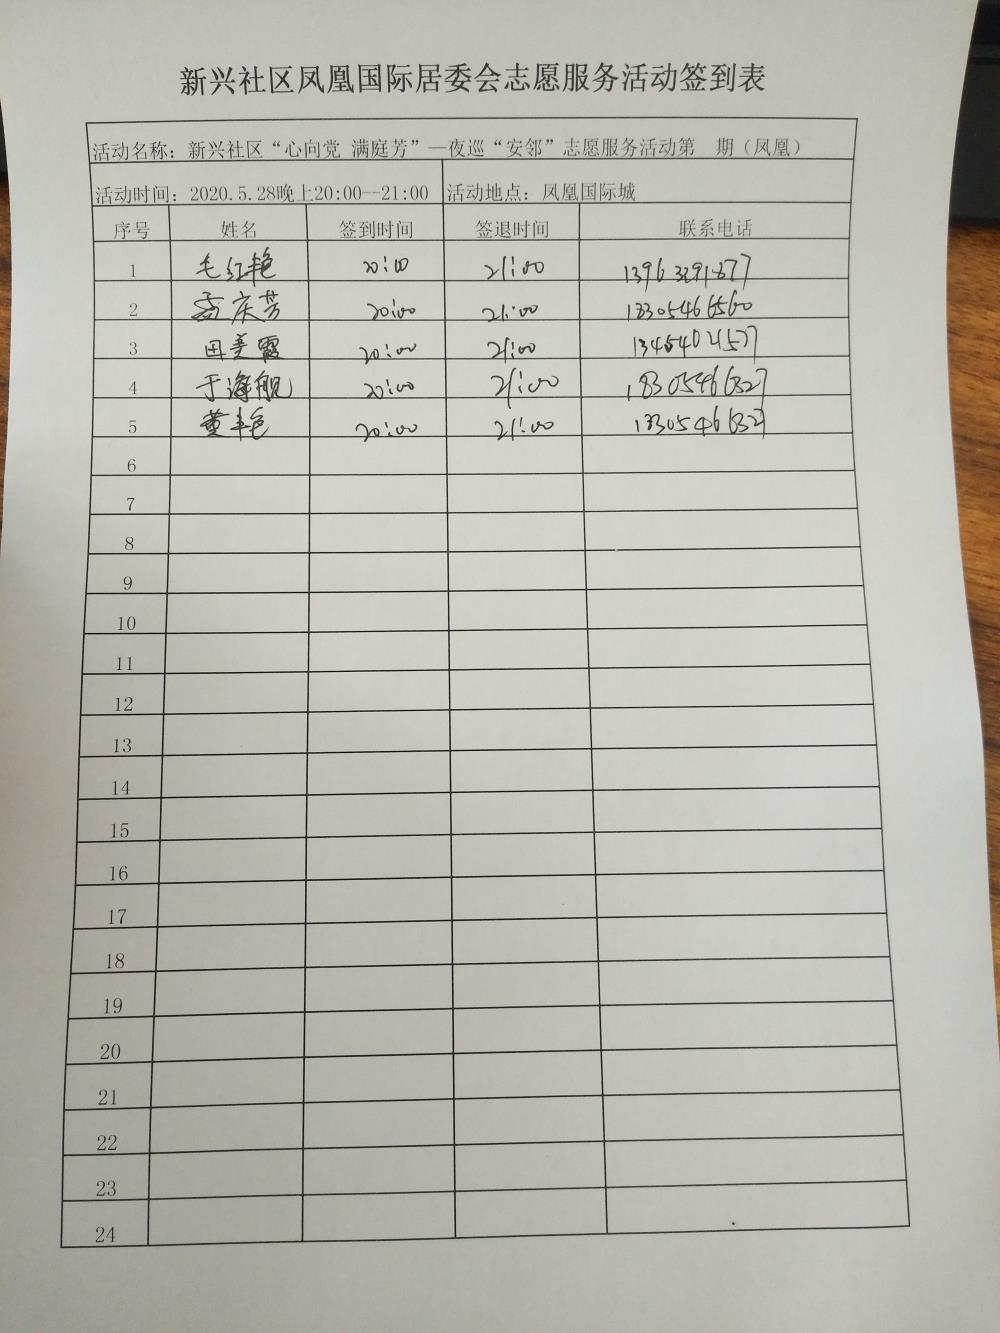 新兴社区凤凰国际居委会志愿服务活动签到表
活动名称：新兴社区“心向党 满庭芳”—夜巡“安邻”志愿服务活动第 期（凤凰）
活动时间：2020.5.28晚上20:00--21:00 活动地点：凤凰国际城
序号 姓名 签到时间 签退时间 联系电话
1 毛红艳 20:00 21:00
2 孟庆芳 20:00 21:00 13305466560
3 田美霞 20:00 21:00 13454021577
4 于海舰 20:00 21:00 18305466327
5 董丰艳 20:00 21:00 13305466327
6
7
8
9
10
11
12
13
14
15
16
17
18
19
20
21
22
23
24